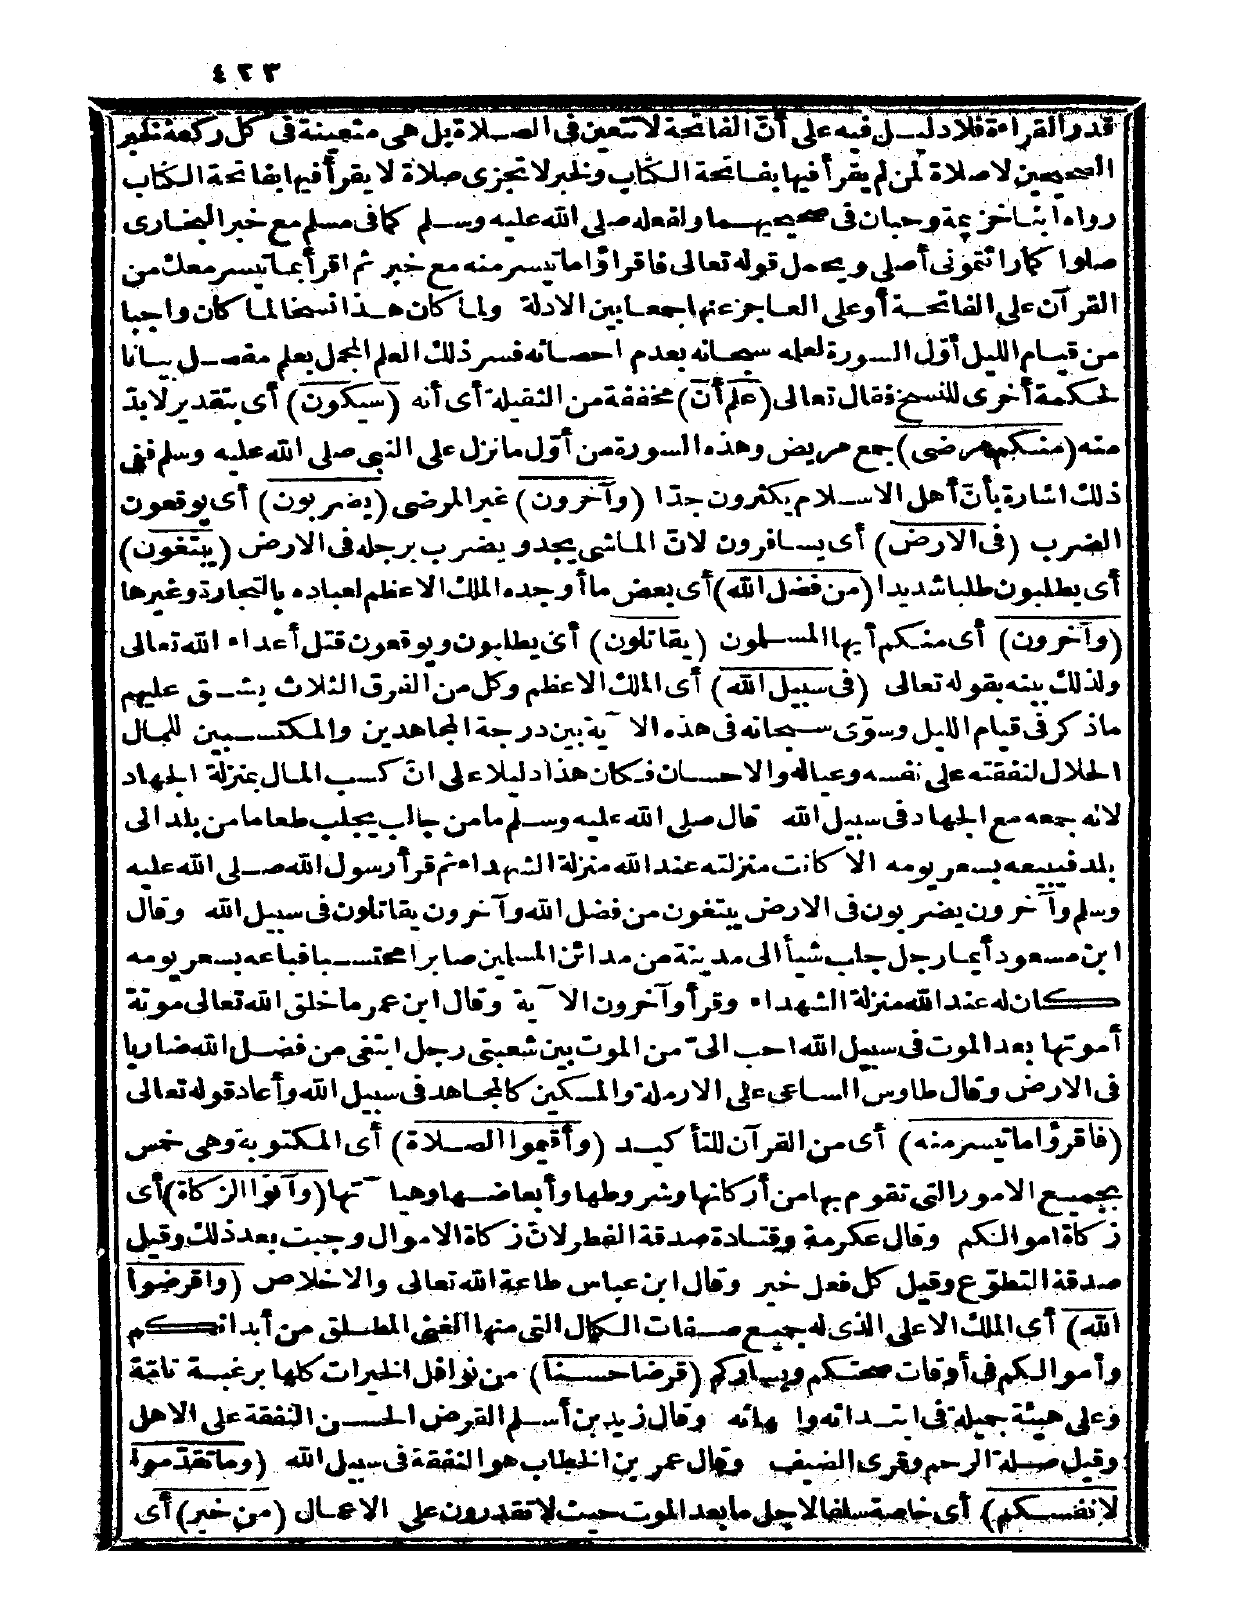 ٤٢٣
قدر القراءة فلا دليل فيه على أنّ الفاتحة لا تتعين فى الصلاة بل هى متعينة فى كل ركعة لخبر
الصحيحين لا صلاة لمن لم يقرأ فيها بفاتحة الكتاب ولخبر لا تجزى صلاة لا يقرأ فيها بفاتحة الكتاب
رواه ابنا خزيمة وحبان فى صحيحيهما ولفعله صلى الله عليه وسلم كما فى مسلم مع خبر البخارى
صلوا كما رأيتمونى أصلى ويحمل قوله تعالى فاقرؤا ما تيسر منه مع خبر ثم اقرأ بما تيسر معك من
القرآن على الفاتحة أو على العاجز عنها جمعا بين الادلة ولما كان هذا نسخا لما كان واجبا
من قيام الليل أوّل السورة لعلمه سبحانه بعدم احصائه فسر ذلك العلم المجمل بعلم مفصل بيانا
لحكمة أخرى للنسخ فقال تعالى (علم أن) مخففة من الثقيلة أى أنه (سيكون) أى بتقدير لا بدّ
منه (منكم مرضى) جمع مريض وهذه السورة من أوّل ما نزل على النبى صلى الله عليه وسلم ففى
ذلك اشارة بأنّ أهل الاسلام يكثرون جدّا (وآخرون) غير المرضى (يضربون) أى يوقعون
الضرب (فى الارض) أى يسافرون لانّ الماشى يجد ويضرب برجله فى الارض (يبتغون)
أى يطلبون طلبا شديدا (من فضل الله) أى بعض ما أوجده الملك الاعظم لعباده بالتجارة وغيرها
(وآخرون) أى منكم أيها المسلمون (يقاتلون) أى يطلبون ويوقعون قتل أعداء الله تعالى
ولذلك بينه بقوله تعالى (فى سبيل الله) أى الملك الاعظم وكل من الفرق الثلاث يشق عليهم
ماذكر فى قيام الليل وسوّى سبحانه فى هذه الآية بين درجة المجاهدين والمكتسبين للمال
الحلال لنفقته على نفسه وعياله والاحسان فكان هذا دليلا على انّ كسب المال بمنزلة الجهاد
لانه جمعه مع الجهاد فى سبيل الله قال صلى الله عليه وسلم ما من جالب يجلب طعاما من بلد الى
بلد فيبيعه بسعر يومه الا كانت منزلته عند الله منزلة الشهداء ثم قرأ رسول الله صلى الله عليه
وسلم وآخرون يضربون فى الارض يبتغون من فضل الله وآخرون يقاتلون فى سبيل الله وقال
ابن مسعود أيما رجل جلب شيأ الى مدينة من مدائن المسلمين صابرا محتسبا فباعه بسعر يومه
كان له عند الله منزلة الشهداء وقرأ وآخرون الآية وقال ابن عمر ما خلق الله تعالى موتة
أموتها بعد الموت فى سبيل الله احب الىّ من الموت بين شعبتى رجل ابتغى من فضل الله ضاربا
فى الارض وقال طاوس الساعى على الارملة والمسكين كالمجاهد فى سبيل الله وأعاد قوله تعالى
(فاقرؤا ما تيسر منه) أى من القرآن للتأكيد (وأقيموا الصلاة) أى المكتوبة وهى خمس
بجميع الامور التى تقوم بها من أركانها وشروطها وأبعاضها وهيآتها (وآتوا الزكاة) أى
زكاة اموالكم وقال عكرمة وقتادة صدقة الفطر لانّ زكاة الاموال وجبت بعد ذلك وقيل
صدقة التطوّع وقيل كل فعل خير وقال ابن عباس طاعة الله تعالى والاخلاص (واقرضوا
الله) أى الملك الاعلى الذى له جميع صفات الكمال التى منها الغنى المطلق من أبدانكم
وأموالكم فى أوقات صحتكم ويساركم (قرضا حسنا) من نوافل الخيرات كلها برغبة تامّة
وعلى هيئة جميلة فى ابتدائه وانتهائه وقال زيد بن أسلم القرض الحسن النفقة على الاهل
وقيل صلة الرحم وقرى الضيف وقال عمر بن الخطاب هو النفقة فى سبيل الله (وما تقدّموا
لانفسكم) أى خاصة سلفا لاجل ما بعد الموت حيث لا تقدرون على الاعمال (من خير) أى